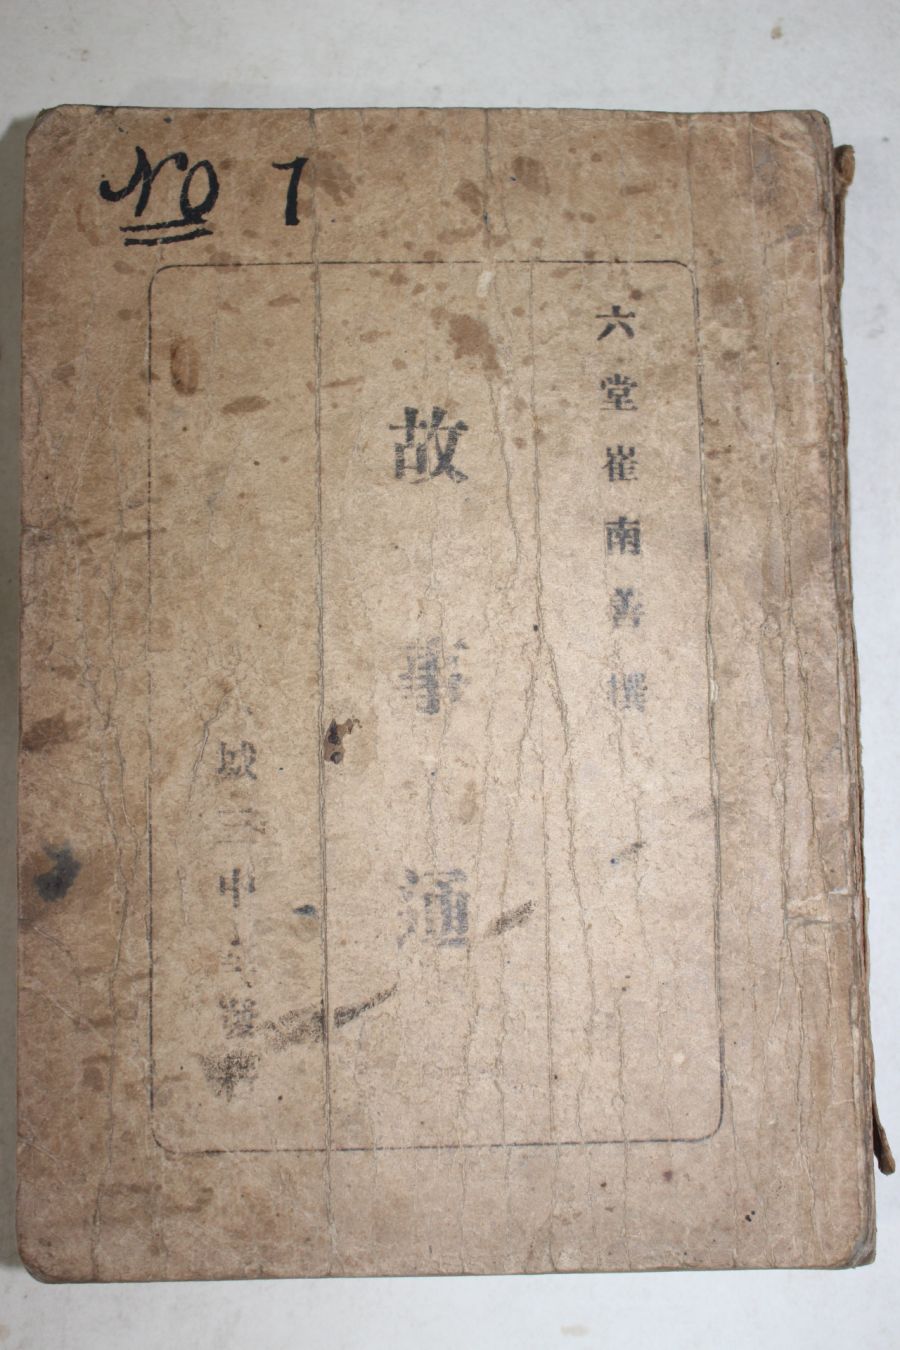 No 7
六堂崔南善撰
故事通
城三中堂